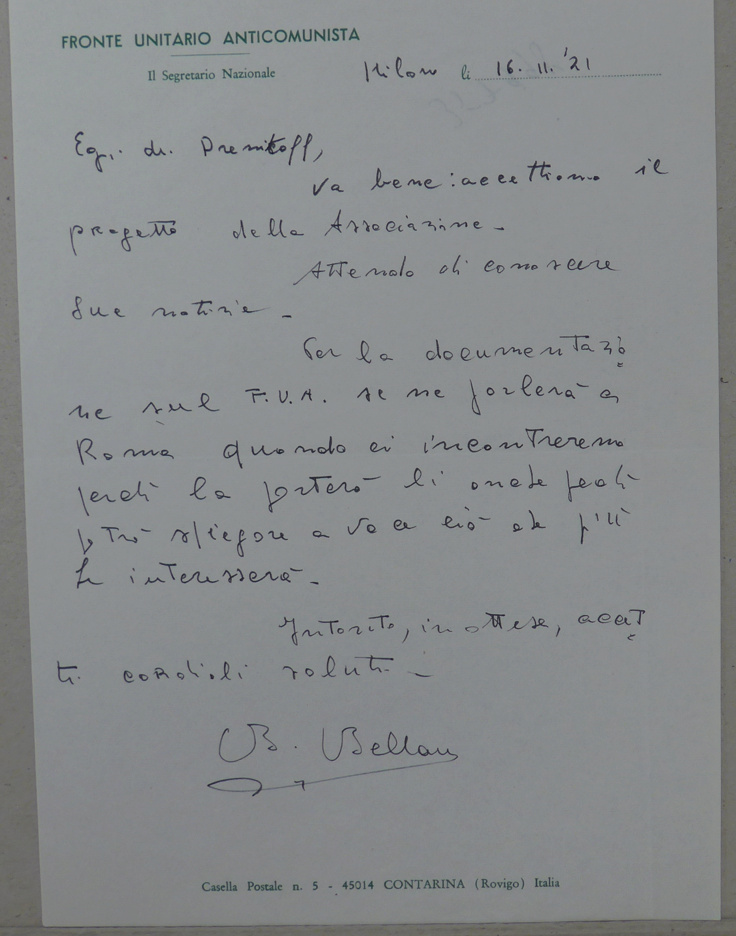 FRONTE UNITARIO ANTICOMUNISTA
Il Segretario Nazionale
Milano li 16. 11. '21
Eg. dr.
va bene: accettiamo il
progetto della Associazione -
Attendo di conoscere
Sue notizie -
Per la documentazio
ne sul F.U.A. se ne parlerà a
Roma quando ci incontreremo
perché la porterò lì anche perché
potrò spiegare a voce ciò che più
Le interesserà -
Intanto, in attesa, accet
ti cordiali saluti -
B.
Casella Postale n. 5 - 45014 CONTARINA (Rovigo) Italia